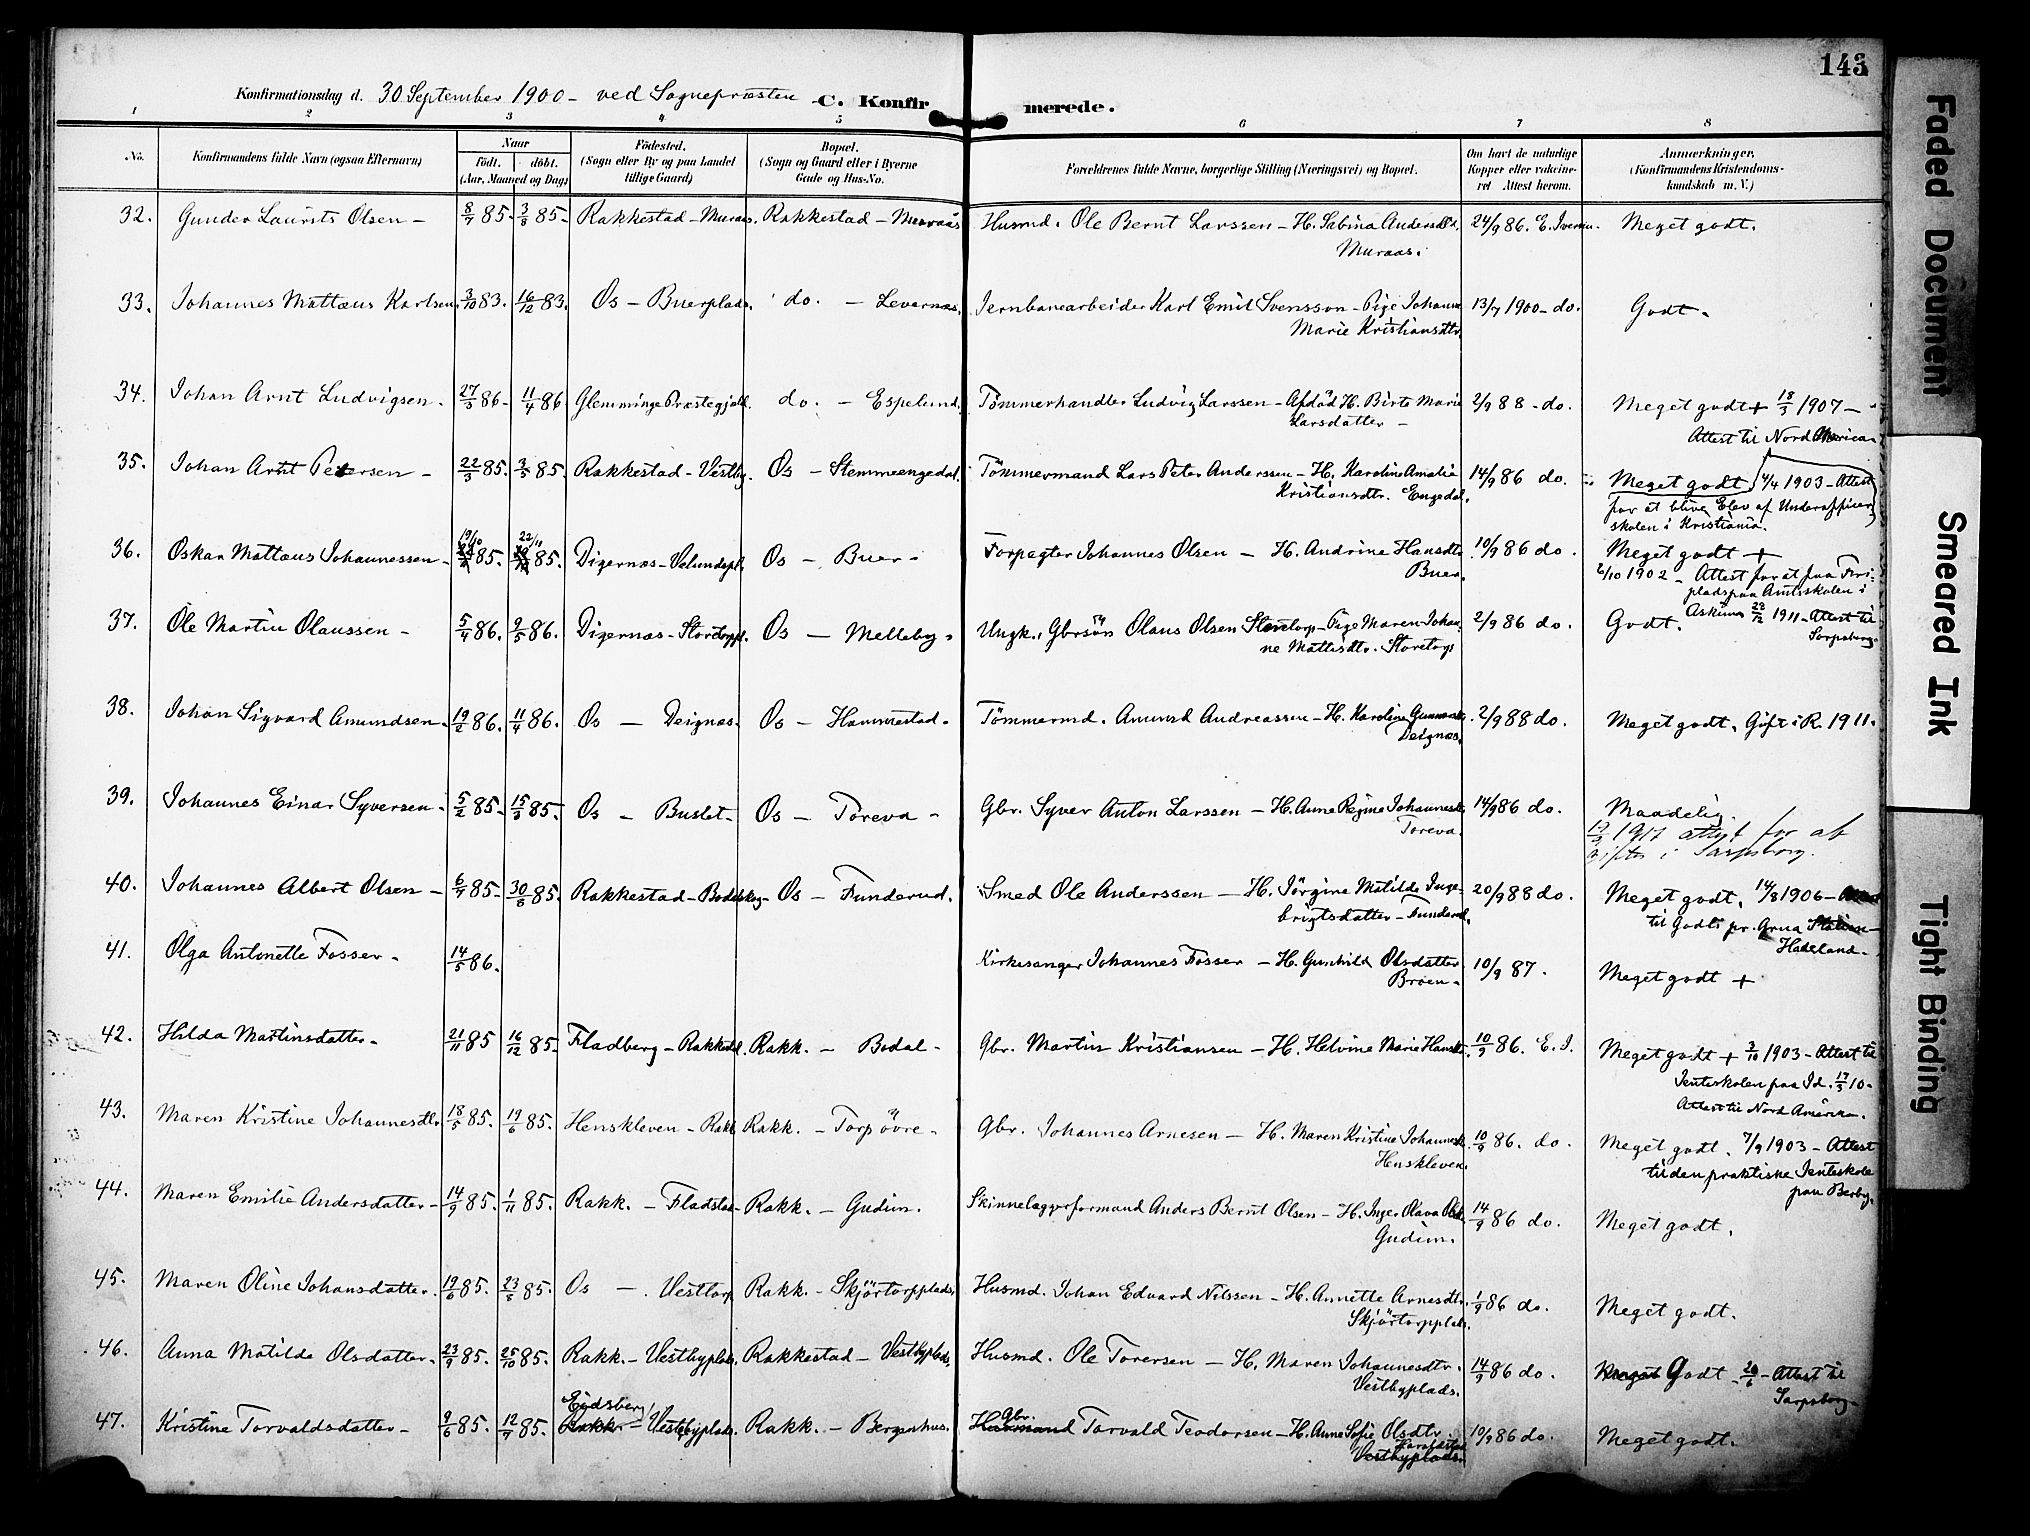 143
Konfirmationsdag d. 30 September 1900 - ved Sognepræsten C. Konfirmerede.
1 2 3 4 5 6 7 8
No. Konfirmandens fulde Navn (ogsaa Efternavn) Naar født. døbt. (Aar, Maaned og Dag) Fødested. (Sogn eller By og paa Landet tillige Gaard) Bopæl. (Sogn og Gaard eller i Byerne Gade og Hus-No. Forældrenes fulde Navne, borgerlige Stilling (Næringsvei) og Bopæl. Om havt de naturlige Kopper eller vakcineret Attest herom. Anmærkninger, (Konfirmandens Kristendomskundskab m. V.)
32. Gunder Laurits Olsen - 8/7 85. 3/8 85 - Rakkestad - Muraas. Rakkestad - Muraas Husmd. Ole Bernt Larssen - H. Sabina Andersdtr. 24/9 86. E. Iversen. Meget godt.
Muraas.
33. Johannes Mattæus Karlsen 3/10 83. 16/12 83. Os - Buerplads. do. - Levernæs. Jernbanearbeider Karl Emil Svensson - Pige Johanne 13/7 1900 - do. Godt -
Marie Kristiansdtr.
34. Johan Arnt Ludvigsen - 27/3 86 - 11/4 86 Glemminge Præstegjæld. do. - Espelund. Tømmerhandler Ludvig Larssen - Afdød H. Birte Marie 2/9 88 - do. Meget godt + 18/3 1907 -
Larsdatter - Attest til Nord America
35. Johan Arnt Petersen - 22/3 85. 3/5 85. Rakkestad - Vestby. Os - Stemmeengedal. Tømmermand Lars Peter Anderssen - H. Karoline Amalie 14/9 86 do. Meget godt 4/4 1903 - Attest
Kristiansdtr. Engedal. for at blive Elev af Underofficer
skolen i Kristiania.
36. Oskar Mattæus Johannessen - 19/10 85. 22/11 85. Digernæs - Velundspl. Os - Buer - Forpagter Johannes Olsen - H. Andrine Hansdtr. 10/9 86 do. Meget godt +
Buer. 2/10 1902 - Attest for at faa Fri-
plads paa Amtsskolen i
Askim
37. Ole Martin Olaussen - 5/4 86. 9/5 86. Digernæs - Stortorppl. Os - Melleby - Ungk., Gbrsøn Olaus Olsen Storetorp - Pige Maren Johan- 2/9 86 do. Godt. 23/12 1911 - Attest til
ne Mattisdtr. Storetorp Sarpsborg.
38. Johan Sigvard Amundsen - 19/2 86. 11/4 86. Os - Deignæs. Os - Hammestad - Tømmermd. Amund Andreassen - H. Karoline Gunnarsdtr. 2/9 88 do. Meget godt. Gift i R. 1911.
Deignæs.
39. Johannes Einar Syversen - 5/2 85 - 15/3 85. Os - Buslet - Os - Toreva - Gbr. Syver Anton Larssen - H. Anne Regine Johannesdtr. 14/9 86 do. Maadelig.
Toreva. 1917 attest for at
giftes i Sarpsborg.
40. Johannes Albert Olsen - 6/7 85. 30/8 85. Rakkestad - Bodalskog - Os - Funderud. Smed Ole Anderssen - H. Jørgine Matilde Inge- 20/9 88 do. Meget godt. 14/8 1906 - Attest
brigtsdatter - Funderud. til Gods pr. Grua Station
Hadeland -
41. Olga Antonette Fosser - 14/5 86. Kirkesanger Johannes Fosser - H. Gunhild Olsdatter 10/9 87. Meget godt +
Brøen -
42. Hilda Martinsdatter - 21/11 85 16/12 85. Fladberg - Rakkestd. Rakk. - Bodal - Gbr. Martin Kristiansen - H. Helvine Marie Hansdtr. 10/9 86. E. I. Meget godt + 3/10 1903 - Attest til
Jenteskolen paa Id. 17/3 10 -
Attest til Nord Amerika.
43. Maren Kristine Johannesdtr. 18/5 85. 19/6 85. Henskleven - Rakk. Rakk. - Torp øvre - Gbr. Johannes Arnesen - H. Maren Kristine Johannesdtr. 10/9 86. do. Meget godt. 7/9 1903 - Attest
Henskleven. til den praktiske Jenteskole
paa Berby.
44. Maren Emilie Andersdatter - 14/9 85. 1/11 85. Rakk. - Fladstad - Rakk. - Gudim. Skinnelæggerformand Anders Bernt Olsen - H. Inger Olava Olsdtr. 14/9 86 do. Meget godt.
Gudim.
45. Maren Oline Johansdatter. 19/6 85. 23/8 85. Os - Vesttorp Rakk. - Skjørtorpplads. Husmd. Johan Edvard Nilssen - H. Annette Arnesdtr. 1/9 86 do. Meget godt.
Skjørtorpplads.
46. Anna Matilde Olsdatter. 23/9 85. 25/10 85. Rakk. - Vestbyplads. Rakkestad - Vestbyplads. Husmd. Ole Torersen - H. Maren Johannesdtr. 14/9 86 do. Meget Godt - 20/6 - Attest til
Vestbyplads. Sarpsborg -
47. Kristine Torvaldsdatter - 9/6 85. 12/7 85. Eidsberg Rakk. - Vestbyplads. Rakk. - Bergerhus. Gbr. Husmand Torvald Teodorsen - H. Anne Sofie Olsdtr. 10/9 86 do. Meget godt.
Vestbyplads.
Faded Document
Smeared Ink
Tight Binding